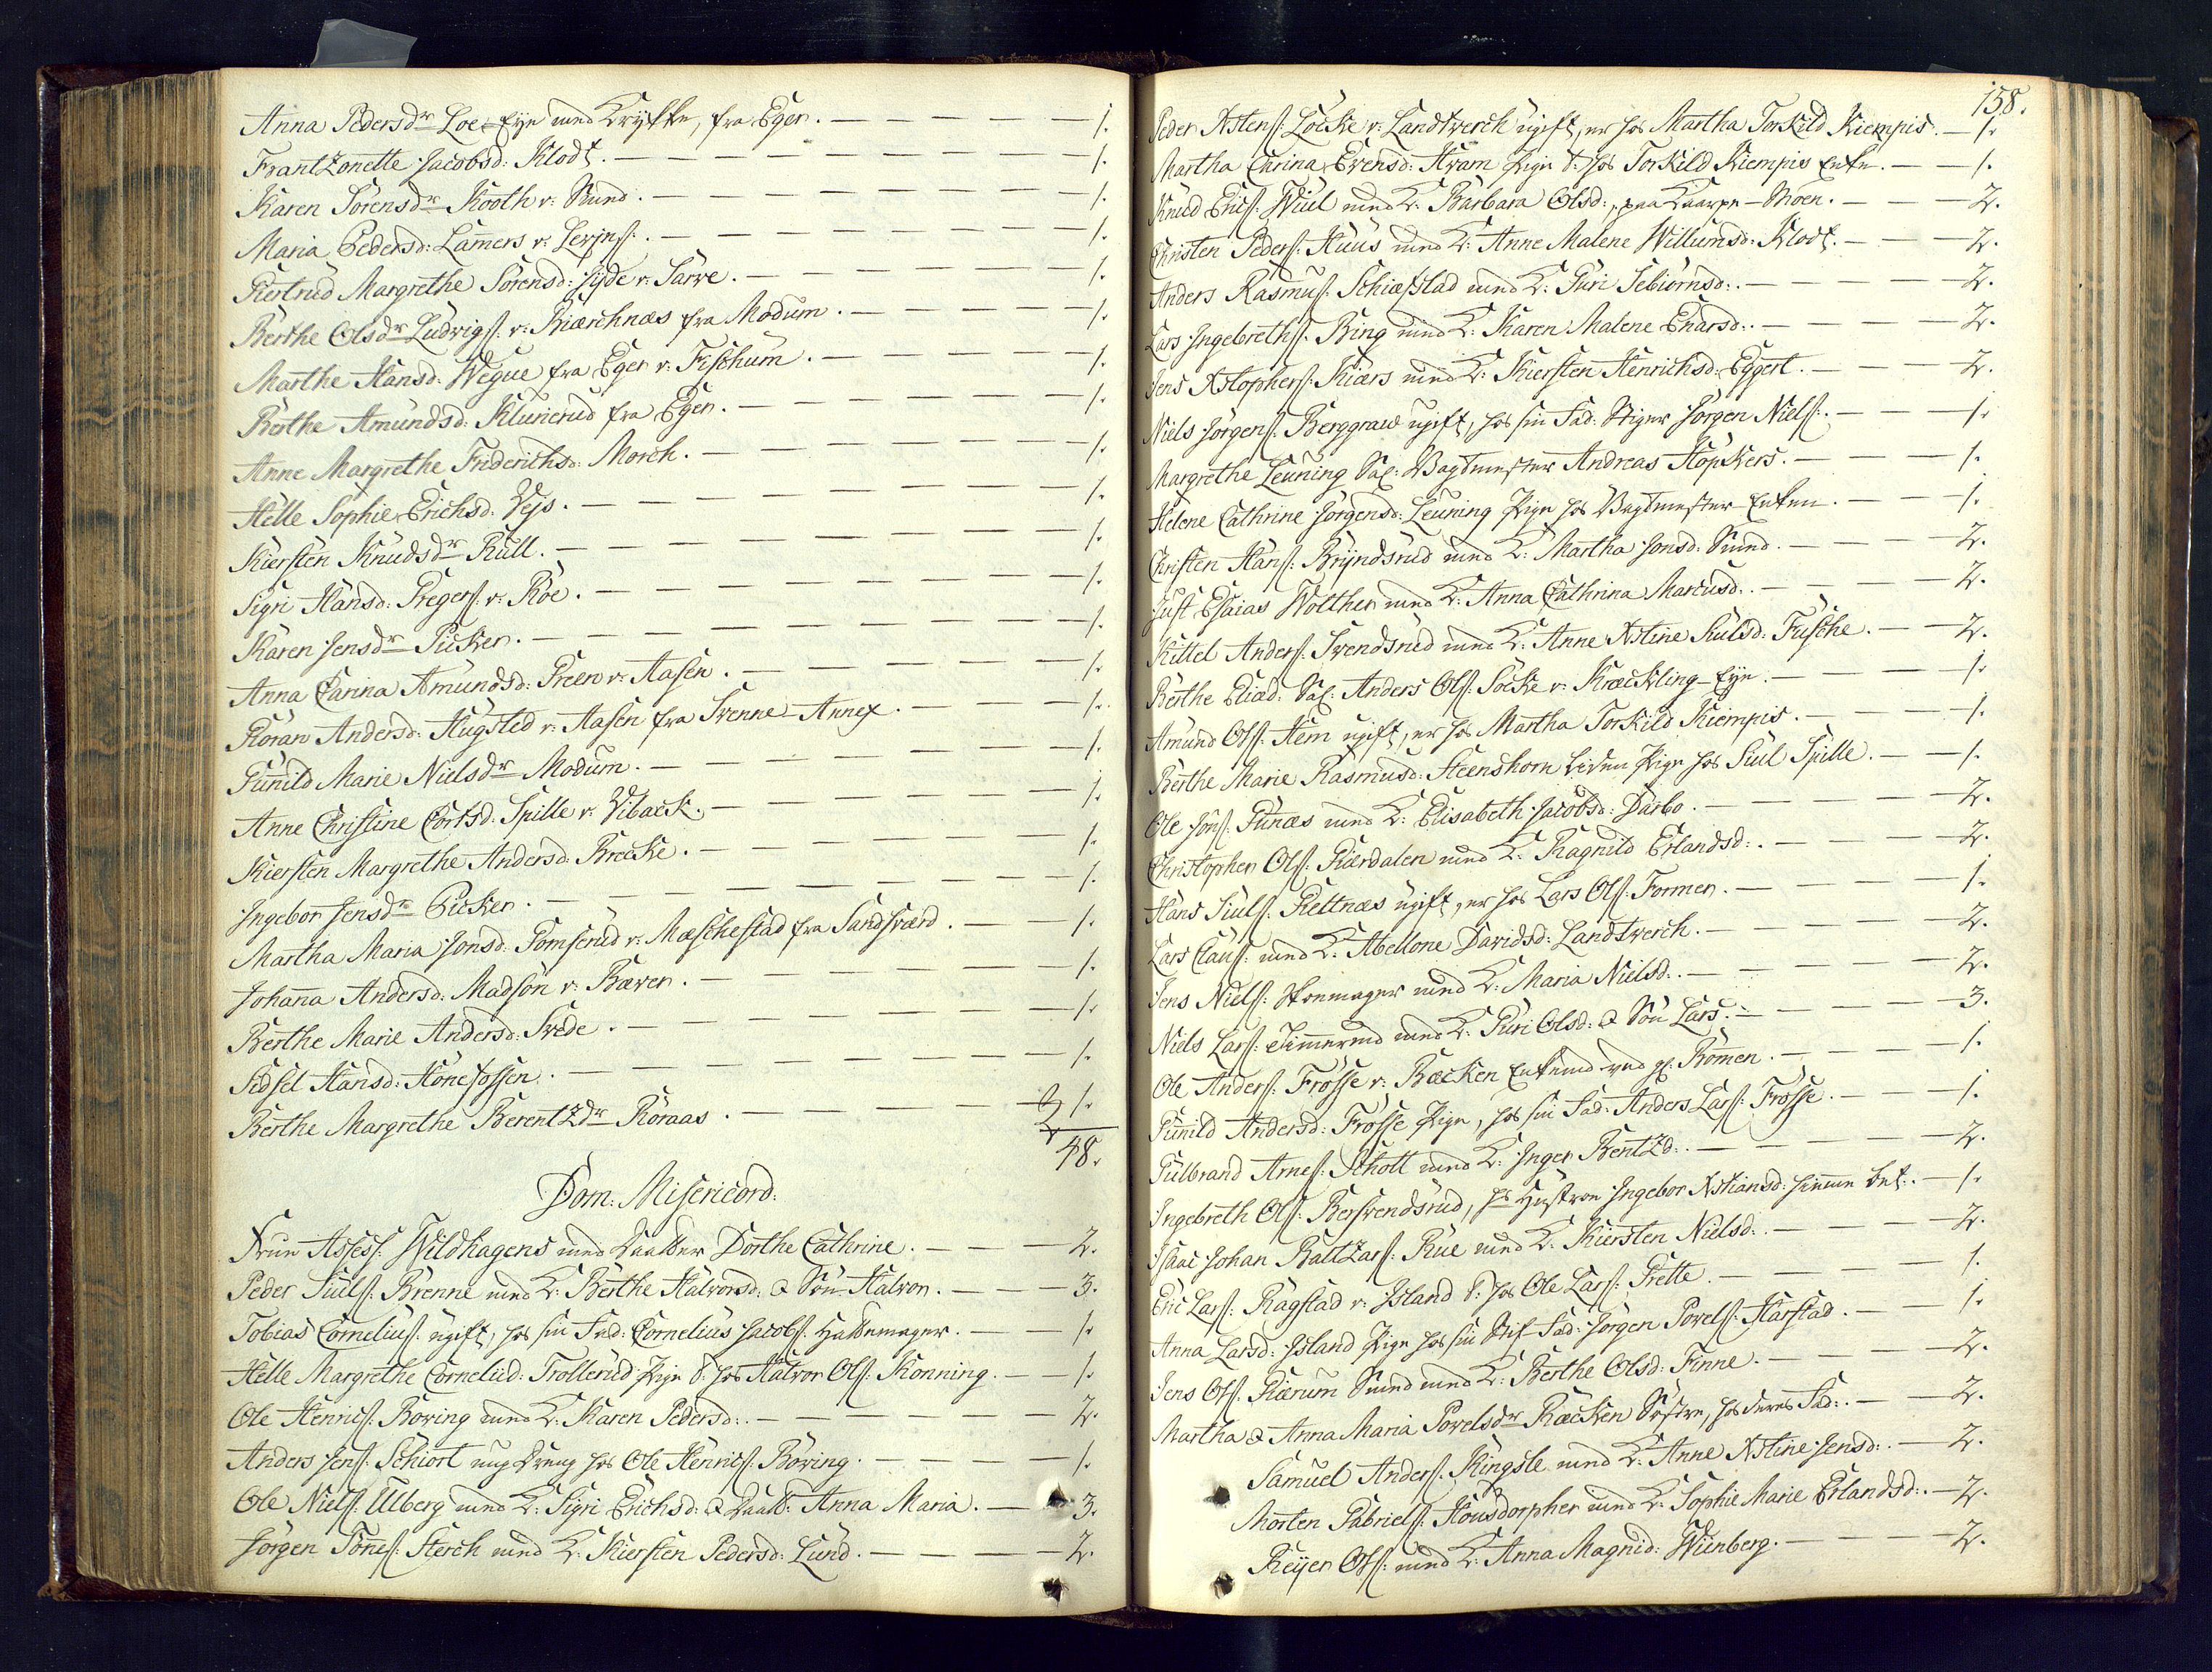 Anna Pedersdr Loe-Eye med Krykke, fra Eger. — 1.
Frantzonette Jacobsd: Klodt. — 1.
Karen Sörensdr Kooth v: Sund. — 1.
Maria Pedersd: Lamers v: Levins: — 1.
Giertrud Margrethe Sörensd: Hyde v: Sarve. — 1.
Berthe Olsdr Ludvigs: v: Biærchnæs fra Modum. — 1.
Marthe Hansd: Wegue fra Eger v: Fischum. — 1.
Berthe Amundsd: Klunerud fra Eger. — 1.
Anne Margrethe Friderichsd: Morch. — 1.
Helle Sophie Erichsd: Vejs. — 1.
Kiersten Knudsdr Rull. — 1.
Sigri Hansd: Greger: v: Röe. — 1.
Karen Jensdr Picker. — 1.
Anna Carina Amundsd: Green v: Aasen. — 1.
Göran Andersd: Hugsted v: Aasen fra Svenne-Annex. — 1.
Gunild Marie Nielsdr Modum. — 1.
Anne Christine Cortsd: Spille v: Vibaeck. — 1.
Kiersten Margrethe Andersd: Brecke. — 1.
Ingebor Jensdr Picker. — 1.
Martha Maria Jonsd: Gomserud v: Mæschestad fra Sandsværd. — 1.
Johana Andersd: Madsön v: Bæver. — 1.
Berthe Marie Andersd: Svede. — 1.
Sidsel Hansd: Hönefossen. — 1.
Berthe Margrethe Berentzdr Röraas. — 1.
48.
Dom: Misericord:
Frue Assess: Wildhagens med Daatter Dorthe Cathrine. — 2.
Peder Juuls: Brenne med K: Berthe Halvorsd: & Sön Halvor. — 3.
Tobias Cornelius: ugift, hos sin Fad: Cornelius Jacobs: Hattemager. — 1.
Helle Margrethe Cornelid: Trollerud Pige t: hos Halvor Ols: Konning. — 1.
Ole Henrics: Boring med K: Karen Pedersd: — 2.
Anders Jens: Schiort ung Dreng hos Ole Henrics: Böring. — 1.
Ole Niels: Ulberg med K: Sigri Erichsd: & Daatt: Anna Maria. — 3.
Jörgen Tönes: Sterch med K: Kiersten Pedersd: Lund. — 2.
158.
Peder Xstens: Löcke v: Landtverch ugift, er hos Martha Torkild Kiempis. — 1.
Martha Carina Evensd: Hvam Pige t: hos Torkild Kiempis Enke. — 1.
Knud Erics: Wiul med K: Barbara Olsd: paa Moen. — 2.
Christen Peders: Huus med K: Anne Malene Willumsd: Klodt. — 2.
Anders Rasmus: Schiæfstad med K: Guri Sebiörnsd: — 2.
Lars Ingebreths: Bing med K: Karen Malene Enarsd: — 2.
Jens Xstophers: Kiærs med K: Kiersten Henrichsd: Eggert. — 2.
Niels Jörgens: Berggraw ugift, hos sin Fad: Stiger Jörgen Niels: — 1.
Margrethe Leuning Sal: Vagtmester Andreas Höpkers. — 1.
Helene Cathrine Jörgensd: Leuning Pige hos Vagtmester-Enken. — 1.
Christen Hans: Bryndsrud med K: Martha Jonsd: Sund. — 2.
Just Esaias Wolther med K: Anna Cathrina Marcusd: — 2.
Kittel Anders: Svendsrud med K: Anne Xstine Juulsd: Fusche. — 2.
Berthe Eliæd: Sal: Anders Ols: Socke v: Kræckling-Eye. — 1.
Amund Ols: Hem ugift, er hos Martha Torkild Kiempis. — 1.
Berthe Marie Rasmusd: Steenshorn liden Pige hos Juul Spille. — 1.
Ole Jons: Gunæs med K: Elisabeth Jacobsd: Darbo. — 2.
Christopher Ols: Giærdalen med K: Ragnild Erlandsd: — 2.
Hans Juuls: Gieltnæs ugift, er hos Lars Ols: Former. — 1.
Lars Claus: med K: Abellone Davidsd: Landtverch. — 2.
Jens Niels: Skomager med K: Maria Nielsd: — 2.
Niels Lars: Timmermd med K: Guri Olsd: & Sön Lars. — 3.
Ole Anders: Frösse v: Bæcken Enkemd ved gl: Römen. — 1.
Gunild Andersd: Frösse Pige, hos sin Fad: Anders Lars: Frösse. — 1.
Gulbrand Arnes: Schott med K: Inger Bentzd: — 2.
Ingebreth Ols: Bersvendsrud, hs Hustroe Ingebor Xstiansd: hiemme bet: — 1.
Isaac Johan Baltzars: Rue med K: Kiersten Nielsd: — 2.
Eric Lars: Ragstad v: Island t: hos Ole Lars: Grette. — 1.
Anna Larsd: Island Pige hos sin Stif-Fad: Jörgen Povels: Harstad. — 1.
Jens Ols: Giærum Smed med K: Berthe Olsd: Finne. — 2.
Martha & Anna Maria Povelsdr Bæcken Söstre, hos deres Fad: — 2.
Samuel Anders: Kingsle med K: Anne Xstine Jensd: — 2.
Morten Gabriels: Housdorpher med K: Sophie Marie Erlandsd: — 2.
Reyer Ols: med K: Anna Magnid: Wiinberg. — 2.